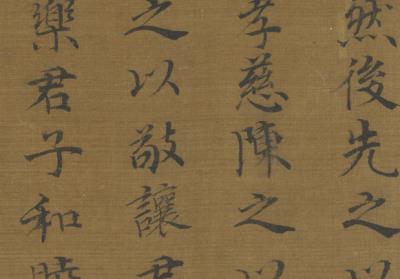 然後先之以
孝慈陳之以
之以敬讓君
樂君子和睦